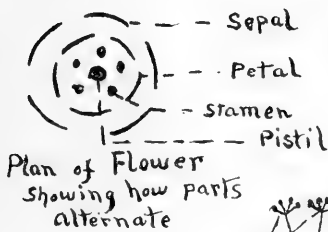 Sepal
Petal
Stamen
Pistil
Plan of Flower
showing how parts
alternate